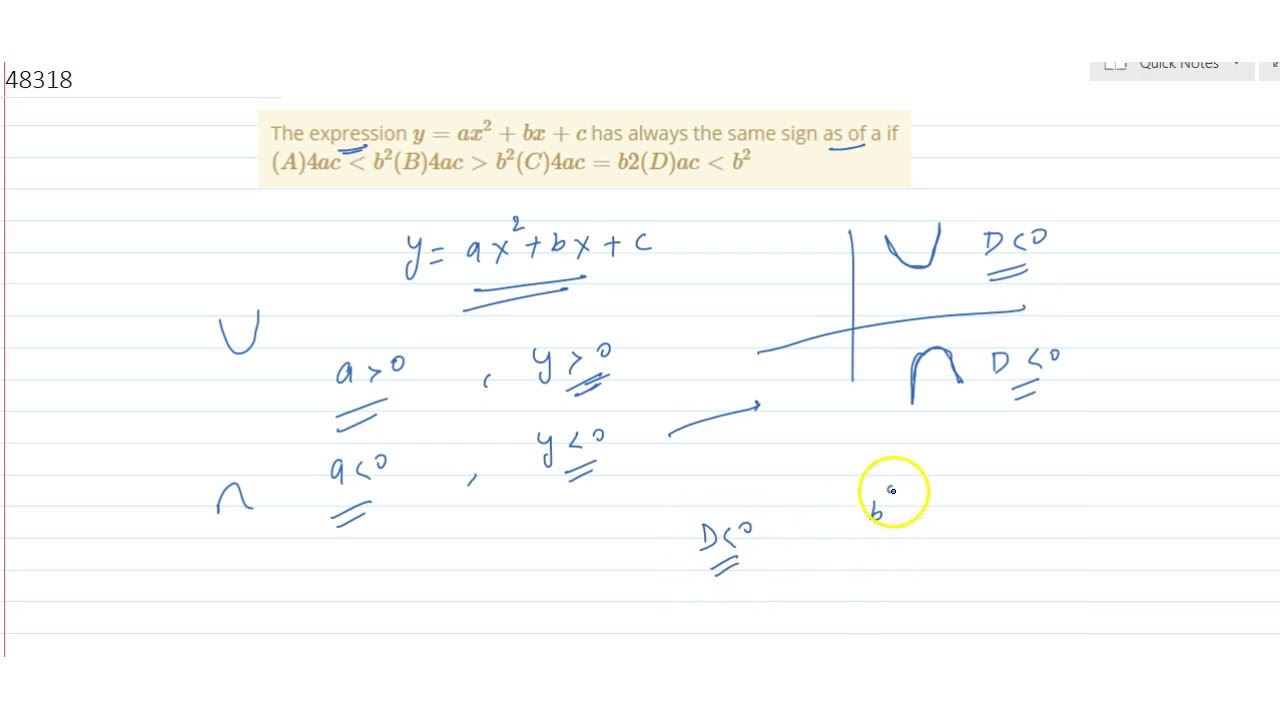 Quick Notes
48318
The expression y = ax² + bx + c has always the same sign as of a if
(A)4ac < b²(B)4ac > b²(C)4ac = b2(D)ac < b²
y = ax² + bx + c
D<0
a>0 , y>0
D<0
a<0 , y<0
b
D<0